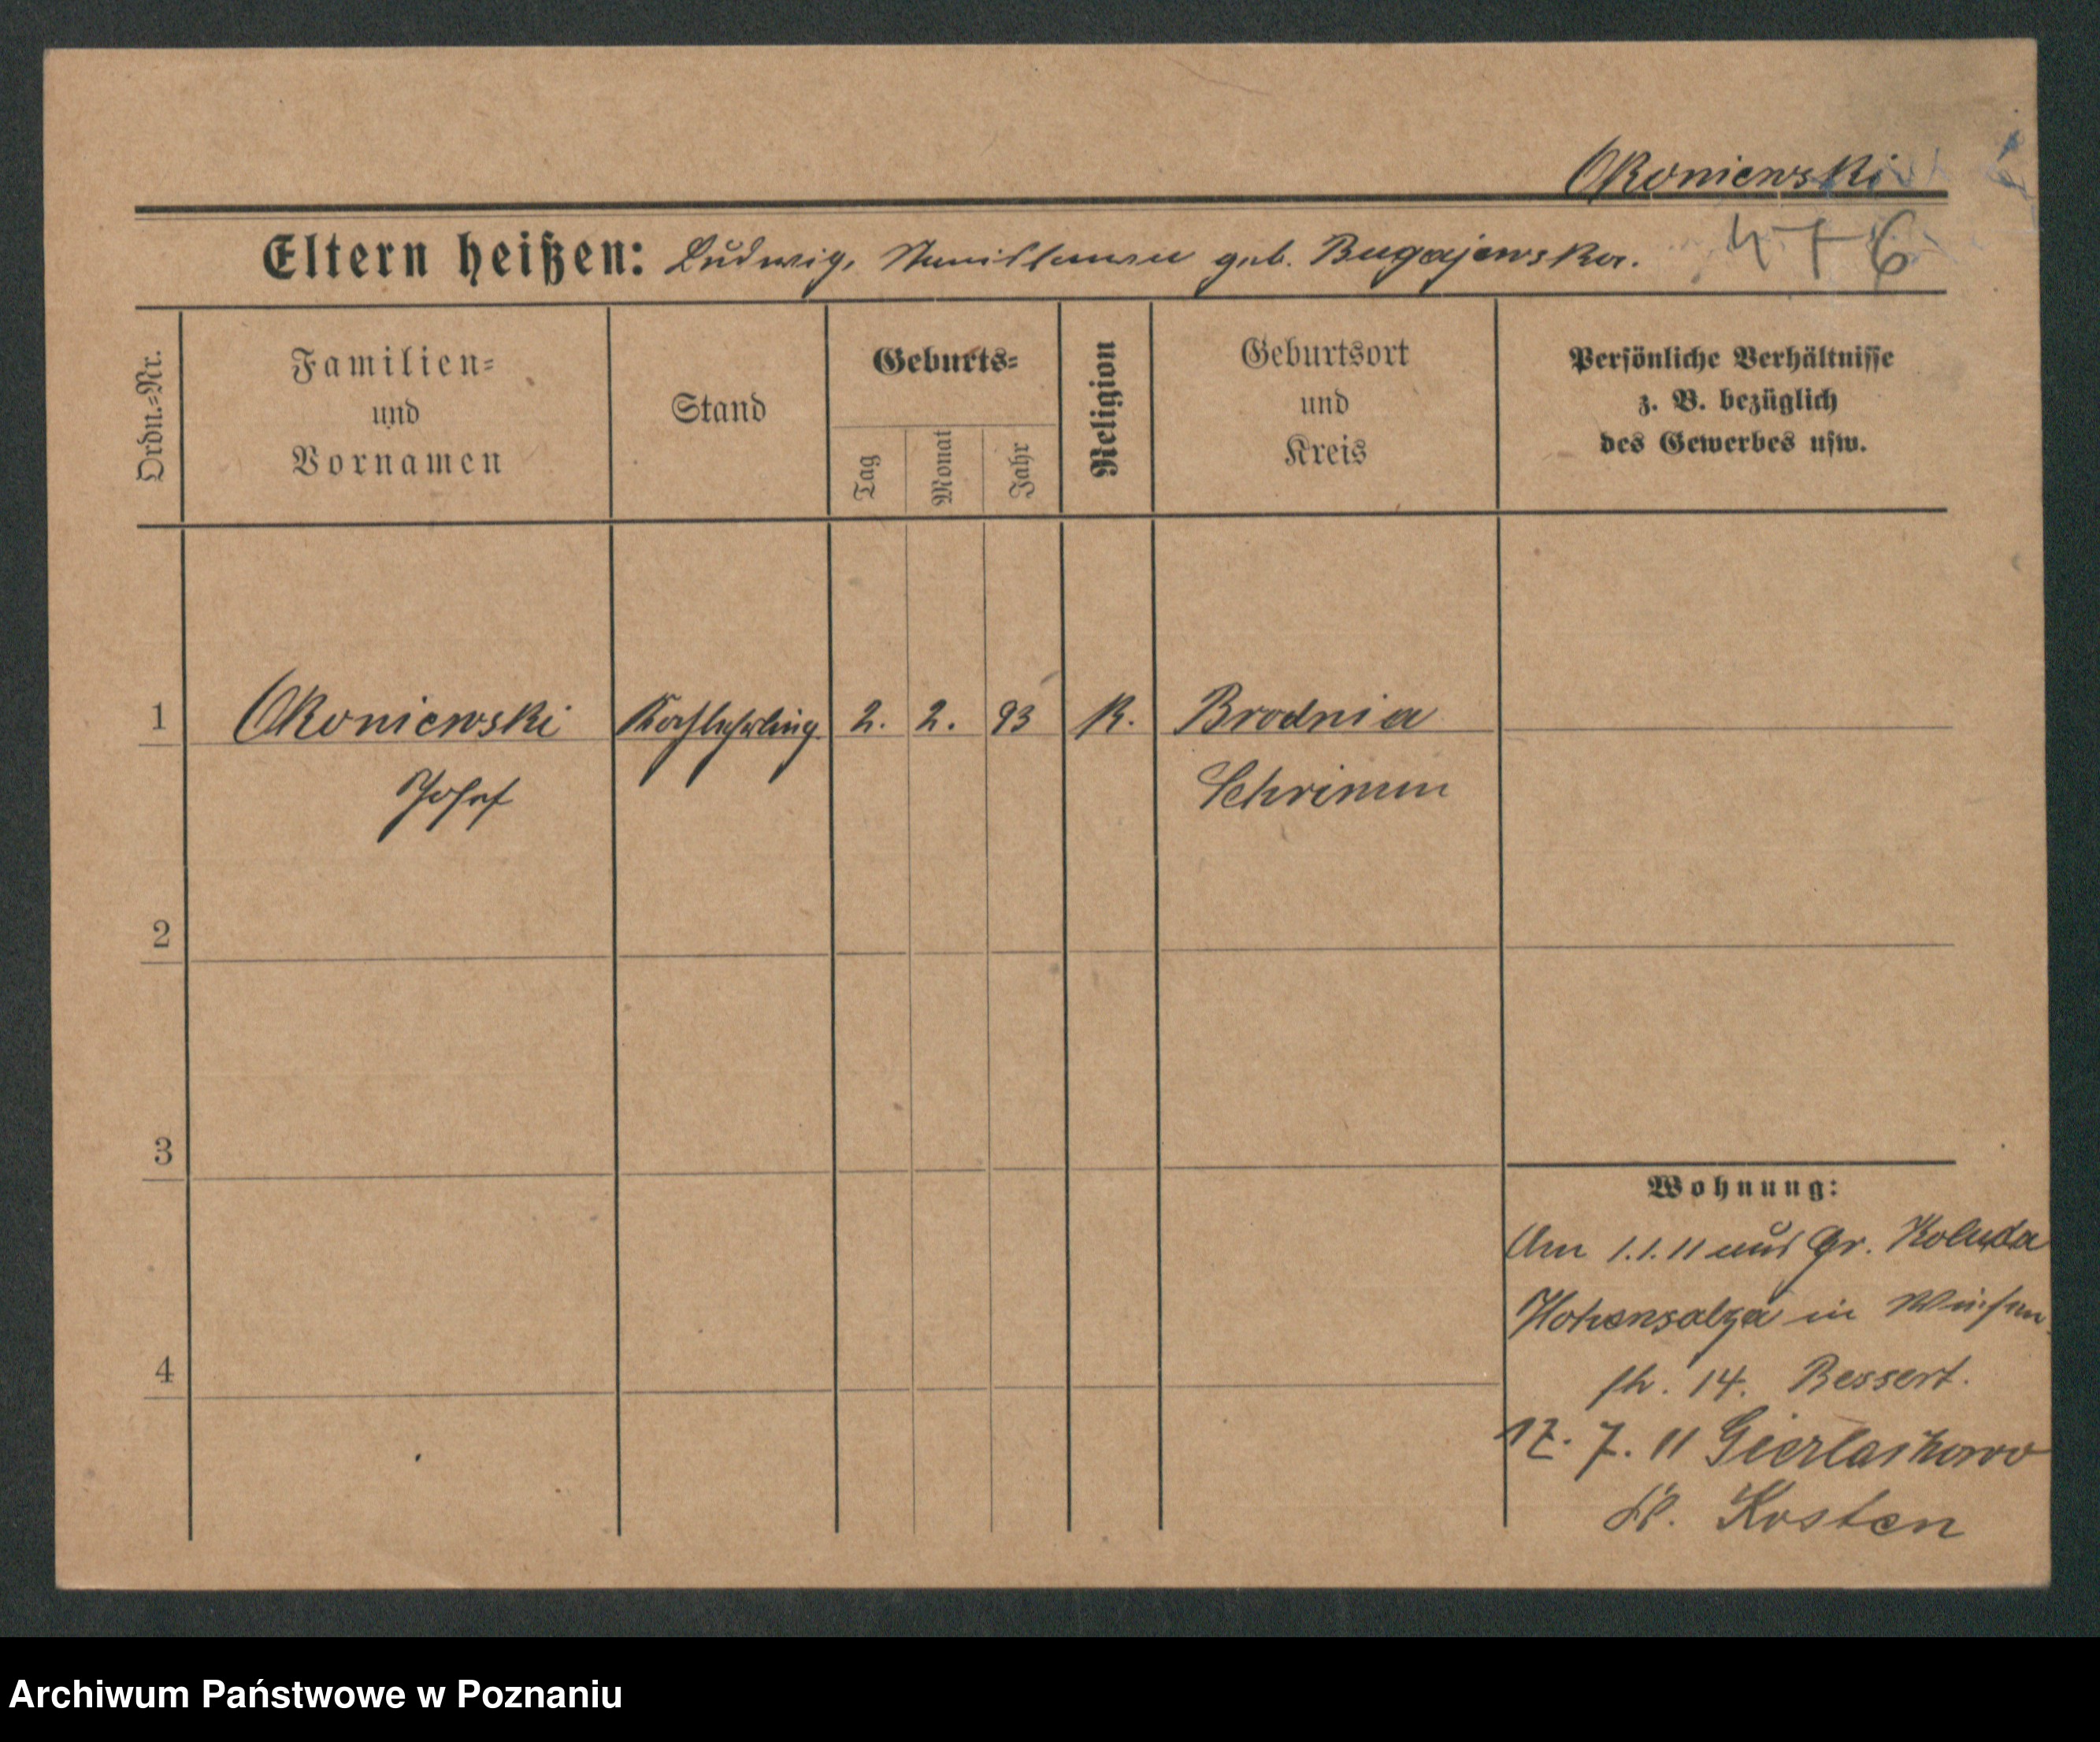 Okoniewski
Eltern heißen: Ludwig, Stanislawa geb. Bugajewska.
476
Ordn.=Nr.
Familien=
und
Vornamen
Stand
Geburts=
Tag
Monat
Jahr
Religion
Geburtsort
und
Kreis
Persönliche Verhältnisse
z. B. bezüglich
des Gewerbes usw.
1 Okoniewski Kochlehrling 2. 2. 93 K. Brodnia
Josef Schrimm
2
3
4
Wohnung:
Am 1.1.11 aus Gr. Koluda
Hohensalza in
14. Bessert.
17. 7. 11 Gierlachowo
Kosten
Archiwum Państwowe w Poznaniu